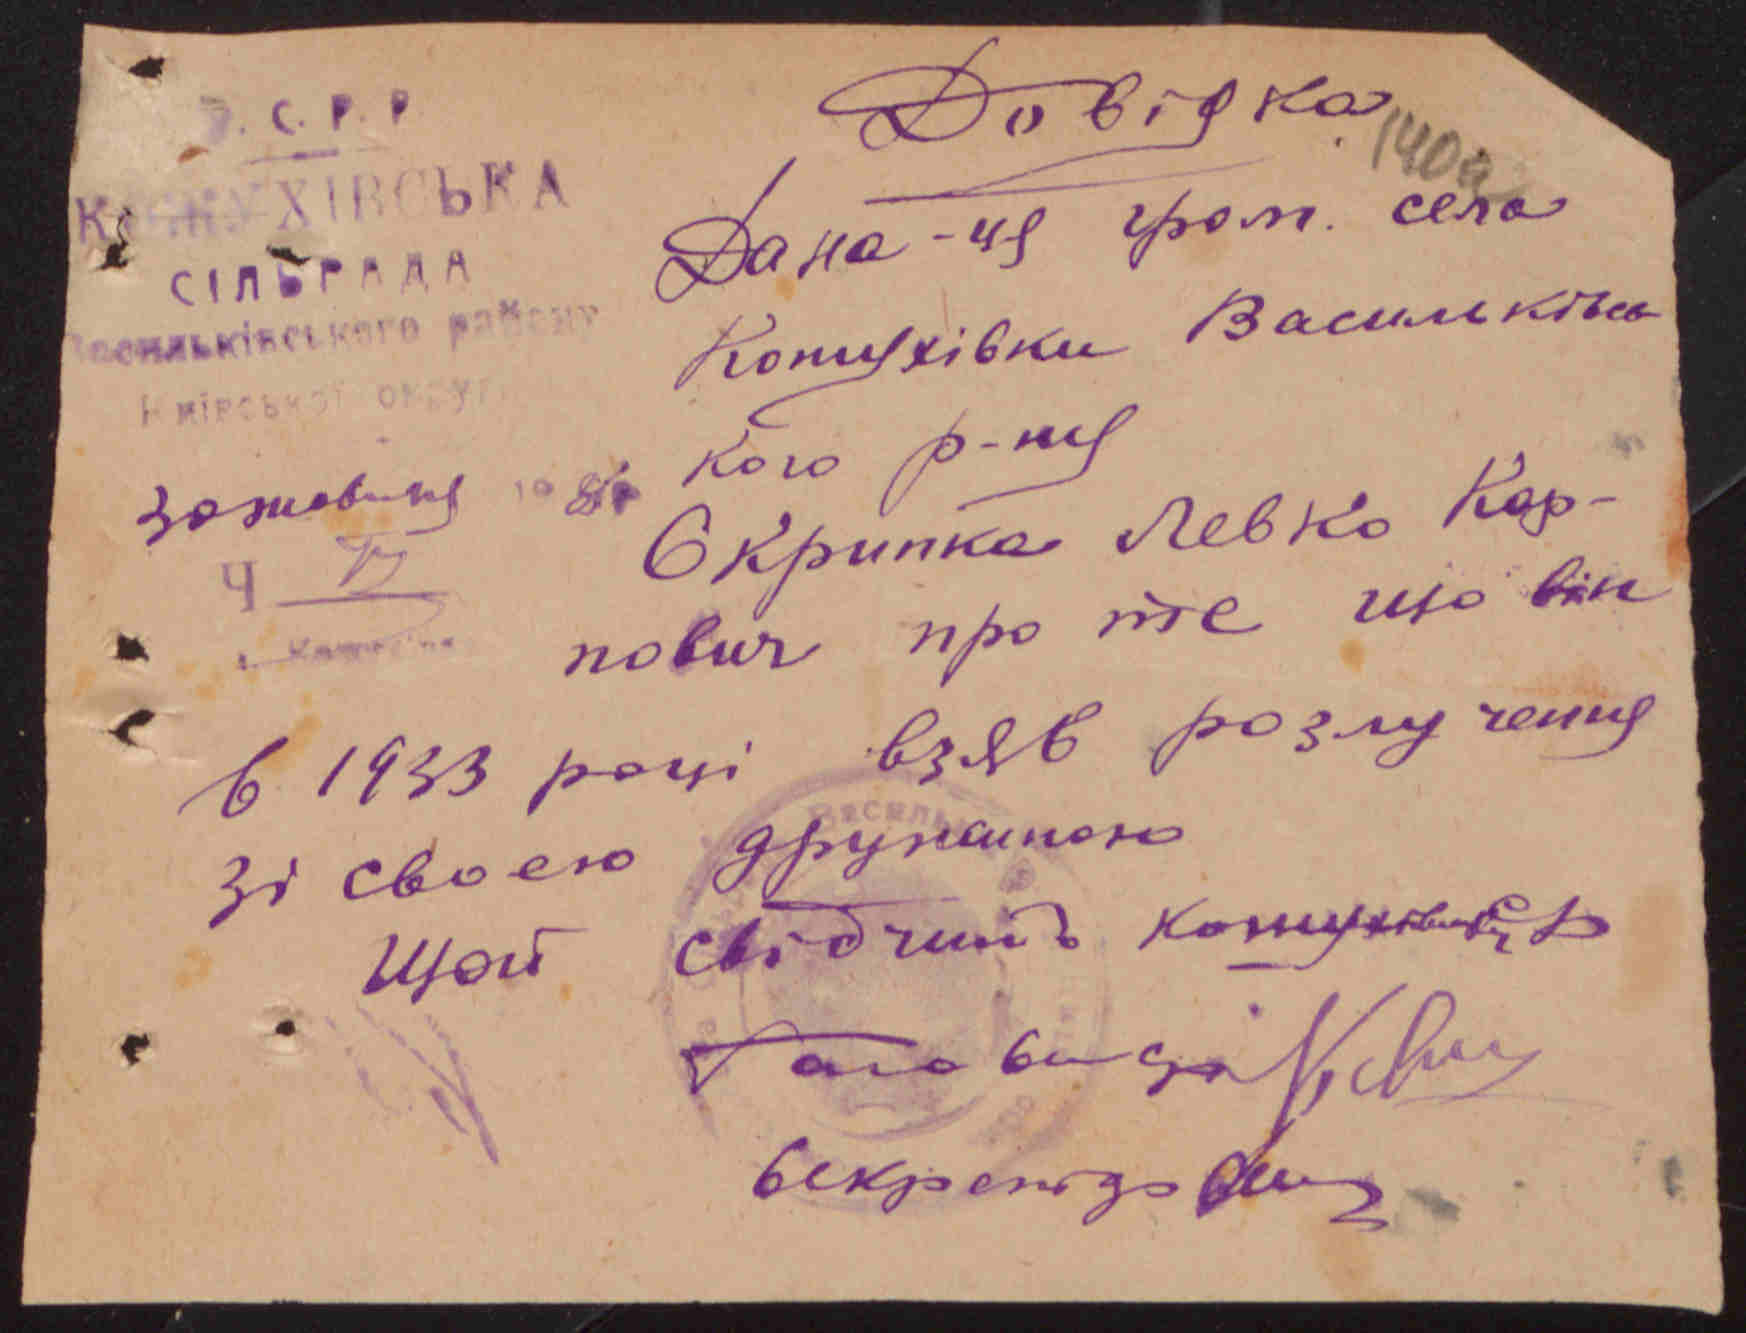 У.С.Р.Р.
КОЖУХІВСЬКА
СІЛЬРАДА
Васильківського району
Київської округи
Ч
Довідка
140а
Дана-ця гром. села
Кожухівки Васильківсь
кого р-ну
Скрипка Левко Кар-
пович про те що він
в 1933 році взяв розлучення
зі своею дружиною
Щой свідчить кожухівська с/р
Голова с/р
Секретар